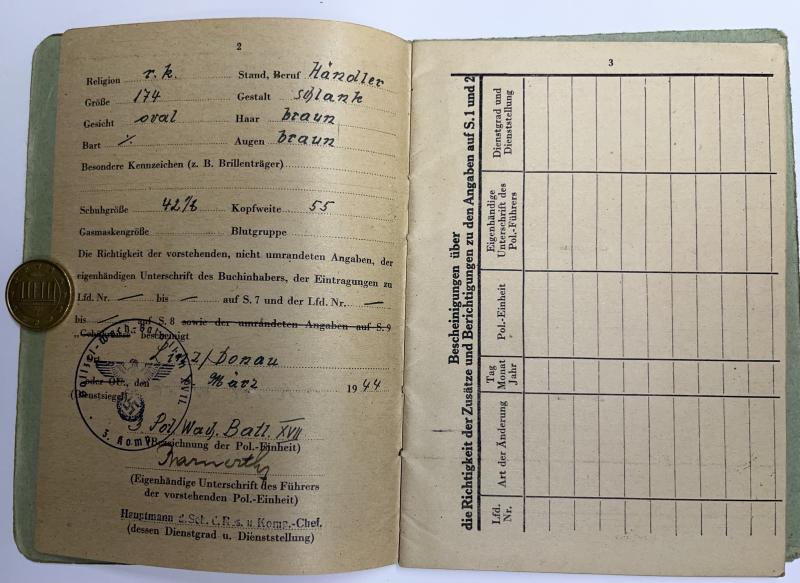 2
Religion r. k. Stand, Beruf Händler
Größe 174 Gestalt schlank
Gesicht oval Haar braun
Bart ∕. Augen braun
Besondere Kennzeichen (z. B. Brillenträger)
Schuhgröße 42½ Kopfweite 55
Gasmaskengröße Blutgruppe
Die Richtigkeit der vorstehenden, nicht umrandeten Angaben, der
eigenhändigen Unterschrift des Buchinhabers, der Eintragungen zu
Lfd. Nr. — bis — auf S. 7 und der Lfd. Nr. —
bis — auf S. 8 sowie der umrandeten Angaben auf S. 9
bescheinigt
Linz/Donau
oder OU., den März 1944
(Dienstsiegel)
Polizei-Wach-Bataillon XVII.
3. Komp.
3. Pol/Wach. Batl. XVII
(Bezeichnung der Pol.-Einheit)
(Eigenhändige Unterschrift des Führers
der vorstehenden Pol.-Einheit)
Hauptmann d.Sch.d.R.u. Komp.-Chef.
(dessen Dienstgrad u. Dienststellung)
3
Bescheinigungen über
die Richtigkeit der Zusätze und Berichtigungen zu den Angaben auf S. 1 und 2
Lfd.
Nr.
Art der Änderung
Tag
Monat
Jahr
Pol.-Einheit
Eigenhändige
Unterschrift des
Pol.-Führers
Dienstgrad und
Dienststellung